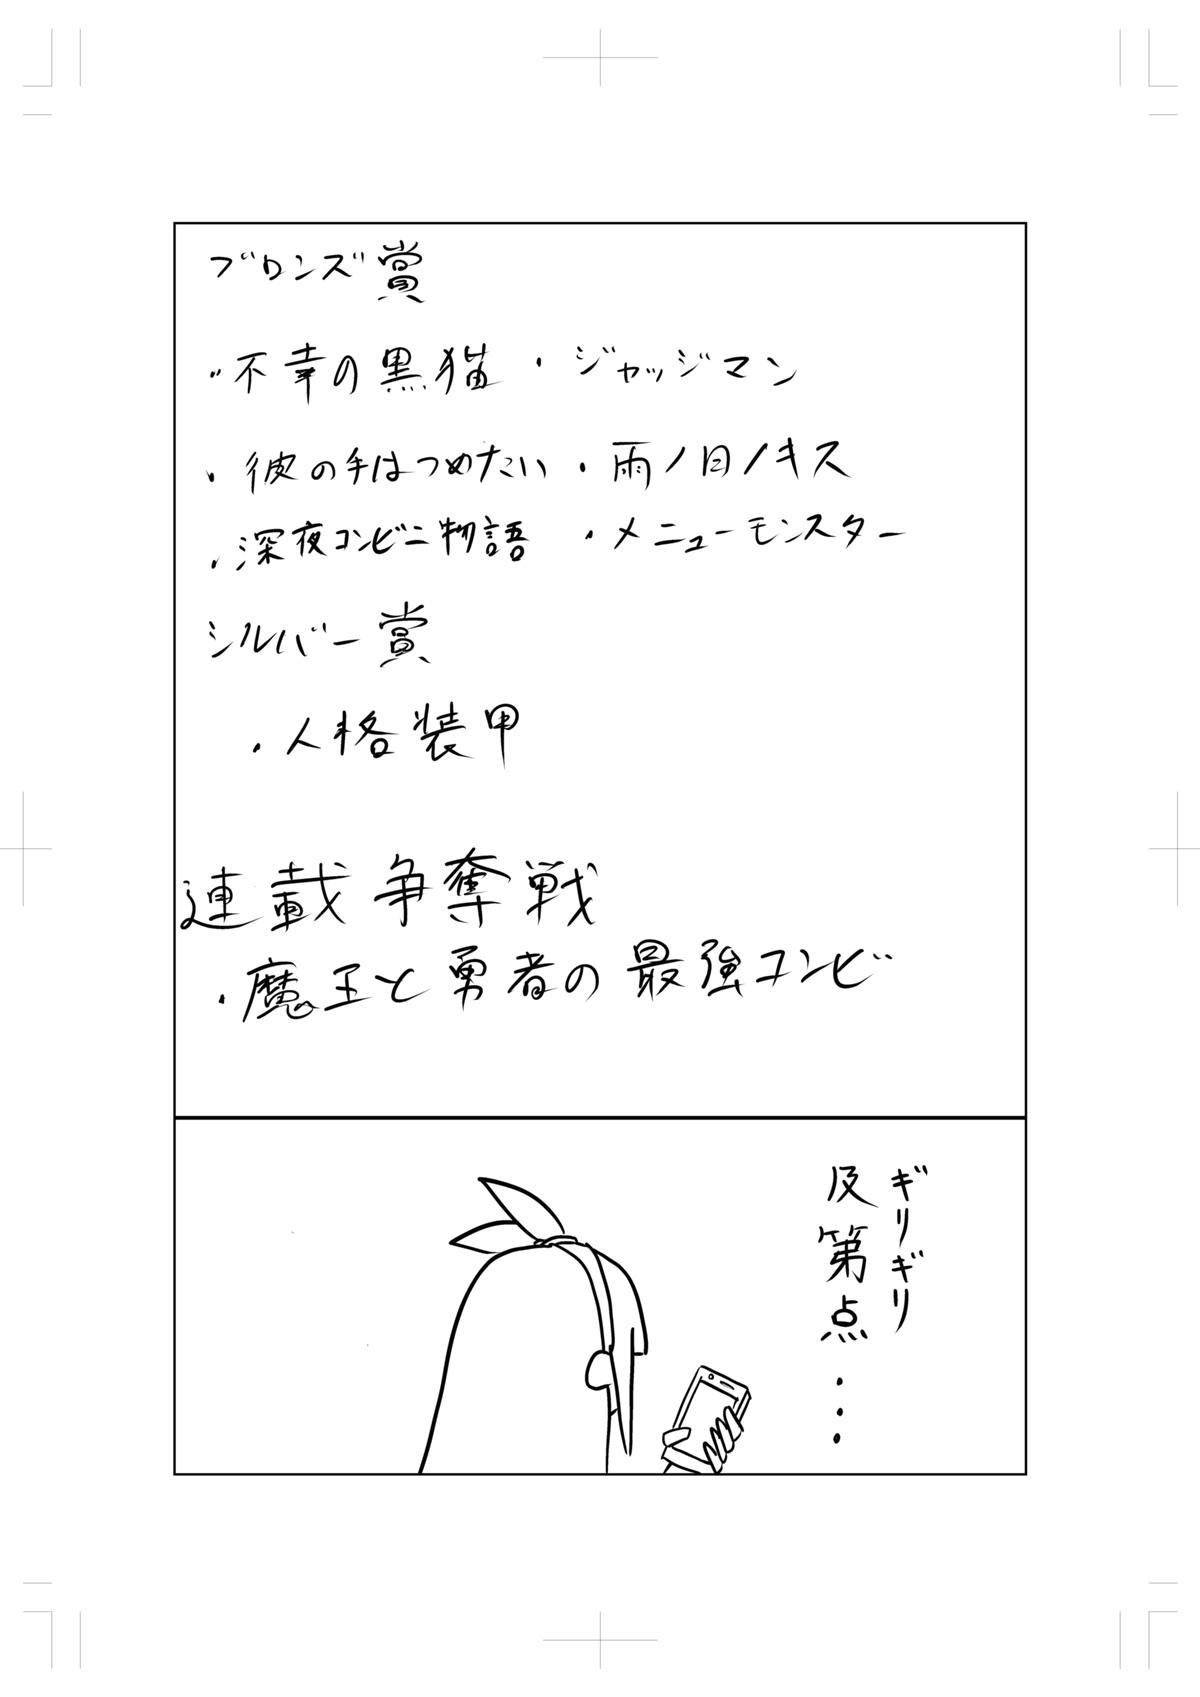 ブロンズ賞
・不幸の黒猫 ・ジャッジマン
・彼の手はつめたい ・雨ノ日ノキス
・深夜コンビニ物語 ・メニューモンスター
シルバー賞
・人格装甲
連載争奪戦
・魔王と勇者の最強コンビ
ギリギリ
及第点・・・